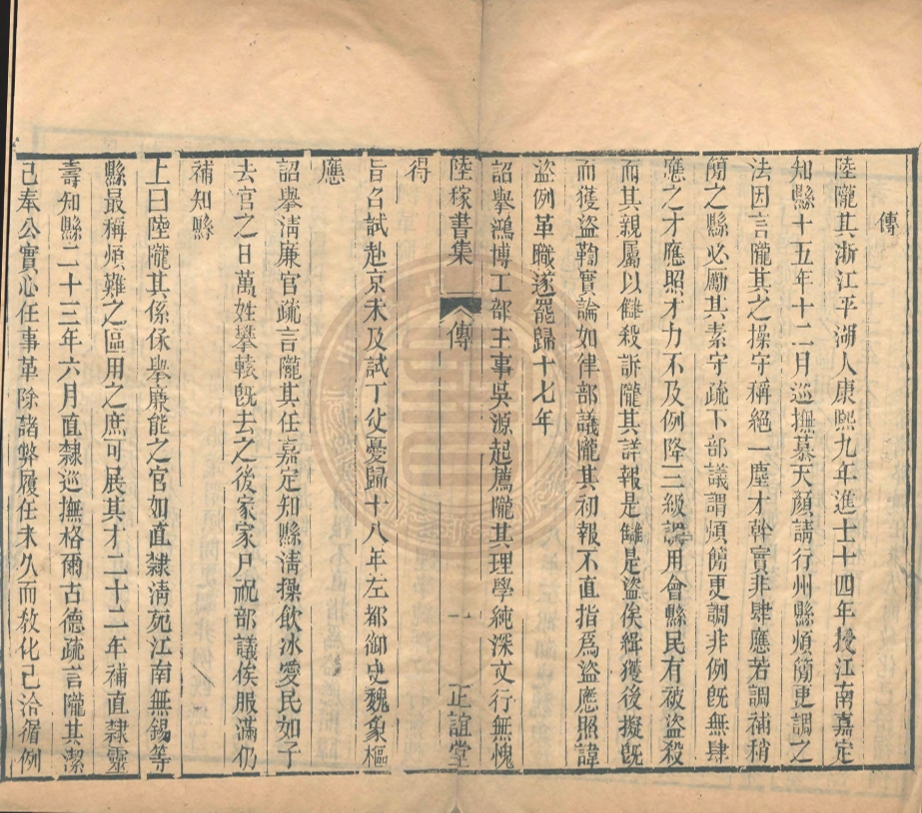 傳
陸隴其浙江平湖人康熙九年進士十四年授江南嘉定
知縣十五年十二月巡撫慕天顏請行州縣煩簡更調之
法因言隴其之操守稱絕一塵才幹實非肆應若調補稍
簡之縣必勵其素守疏下部議謂煩簡更調非例旣無肆
應之才應照才力不及例降三級調用會縣民有被盜殺
而其親屬以讎殺訴隴其詳報是讎是盜俟緝獲後擬旣
而獲盜鞫實論如律部議隴其初報不直指爲盜應照諱
盜例革職遂罷歸十七年
詔舉鴻博工部主事吳源起薦隴其理學純深文行無愧
陸稼書集 傳 一 正誼堂
得
旨召試赴京未及試丁父憂歸十八年左都御史魏象樞
應
詔舉淸廉官疏言隴其任嘉定知縣淸操飮冰愛民如子
去官之日萬姓攀轅旣去之後家家尸祝部議俟服滿仍
補知縣
上曰陸隴其係保舉廉能之官如直隸淸苑江南無錫等
縣最稱煩難之區用之庶可展其才二十二年補直隸靈
壽知縣二十三年六月直隸巡撫格爾古德疏言隴其潔
己奉公實心任事革除諸弊履任未久而敎化已洽循例